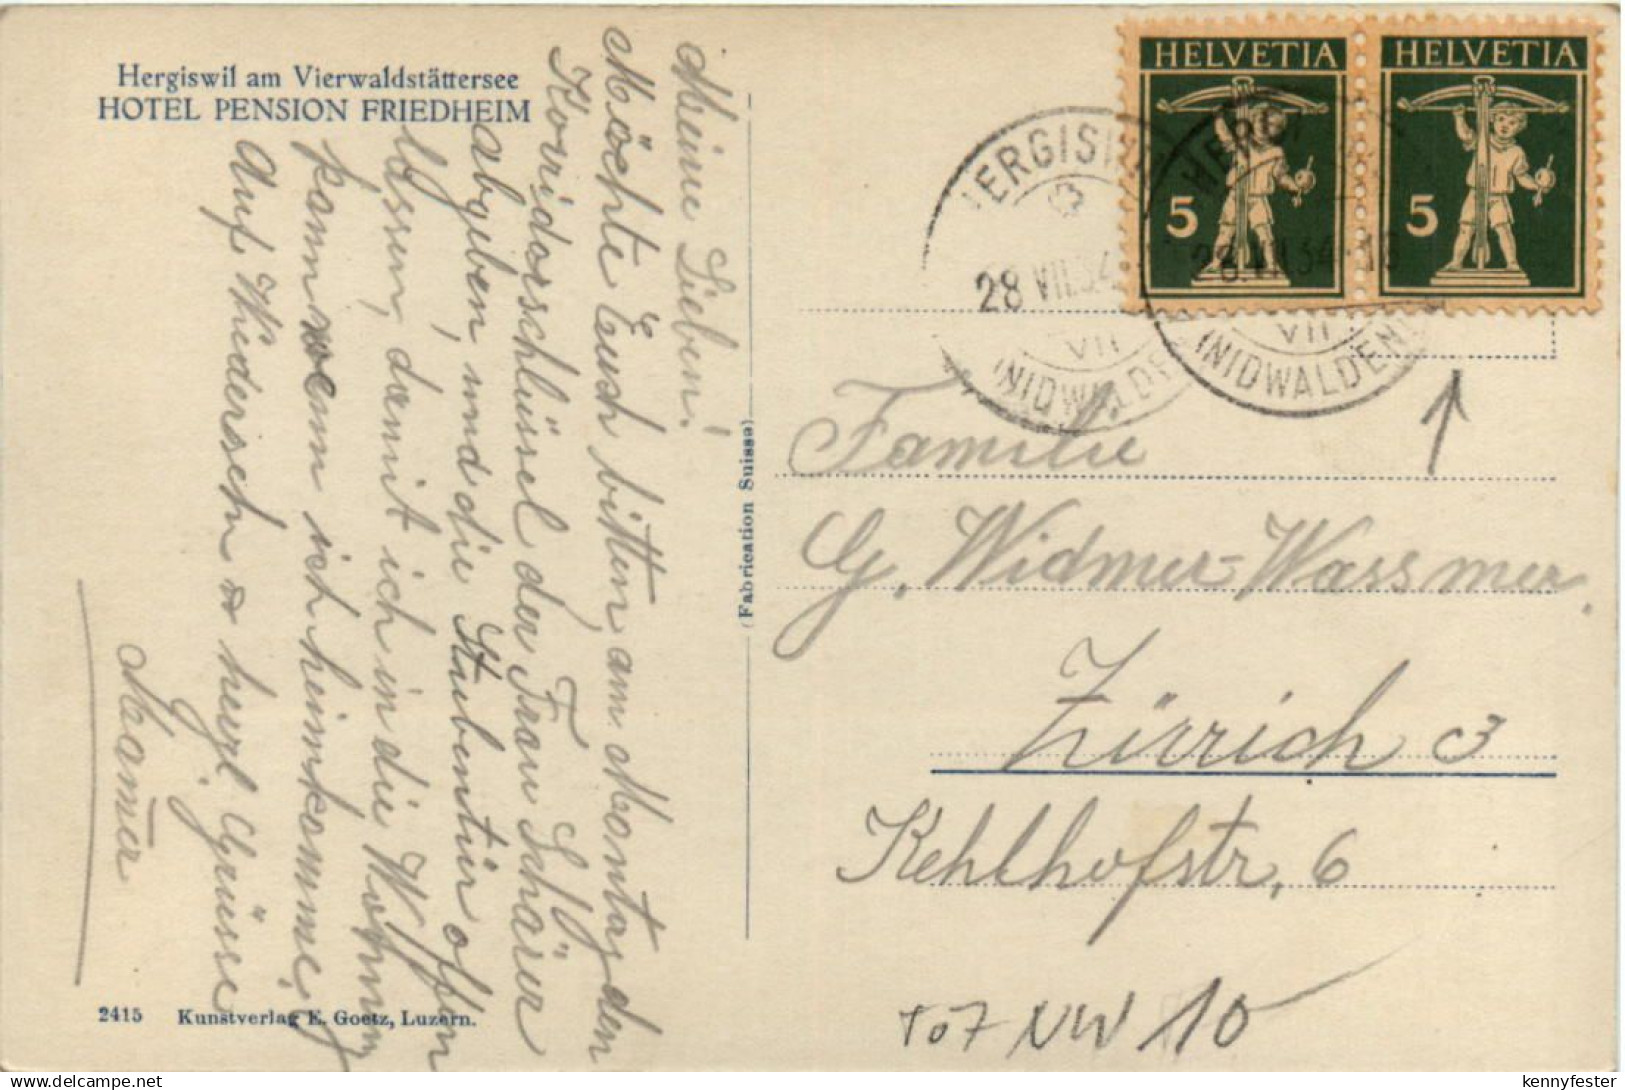 Hergiswil am Vierwaldstättersee
HOTEL PENSION FRIEDHEIM
Meine Lieben!
Möchte Euch bitten, am Montag den
Korridorschlüssel der Frau Schärer
abgeben, und die Stubentür offen
lassen, damit ich in die Wohnung
kann wenn ich heimkomme,
Auf Wiedersehn & herzl. Grüsse
Mamer
2415 Kunstverlag E. Goetz, Luzern.
(Fabrication Suisse)
HELVETIA
5
HELVETIA
5
HERGISWIL
28 VII.34
VII
(NIDWALDEN)
HERGI
28.VII.34
VII
(NIDWALDEN)
Familie
G. Widmer-Wassmer.
Zürich 3
Kehlhofstr, 6
To7 NW 10
kennyfester